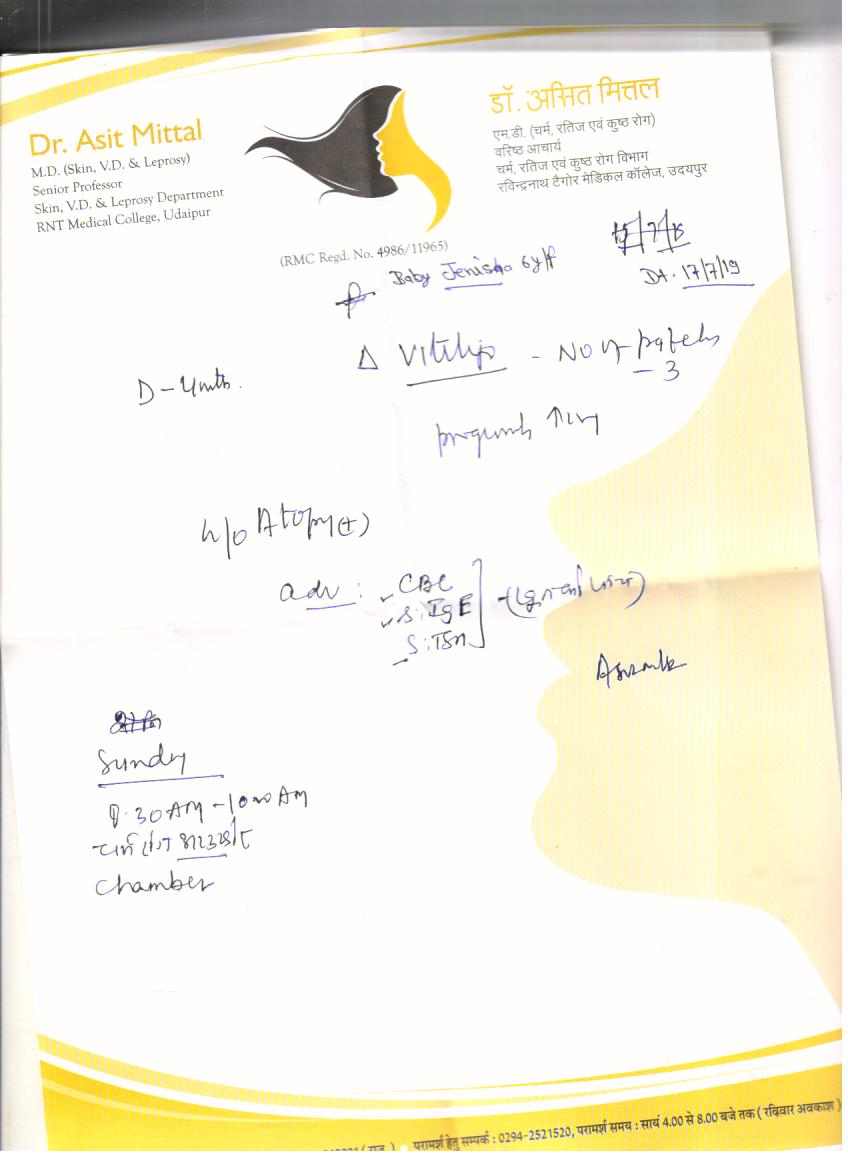 Dr. Asit Mittal
M.D. (Skin, V.D. & Leprosy)
Senior Professor
Skin, V.D. & Leprosy Department
RNT Medical College, Udaipur
डॉ. असित मित्तल
एम.डी. (चर्म, रतिज एवं कुष्ठ रोग)
वरिष्ठ आचार्य
चर्म, रतिज एवं कुष्ठ रोग विभाग
रविन्द्रनाथ टैगोर मेडिकल कॉलेज, उदयपुर
(RMC Regd. No. 4986/11965)
Dt. 17/7/19
Baby Jenisha 6y/f
Δ Vitiligo - No of patches
- 3
D - 4mth.
h/o Atopy (+)
adv : CBC
S. IgE
S. TSH
Sunday
8.30 AM - 10.00 AM
Chamber
परामर्श हेतु सम्पर्क : 0294-2521520, परामर्श समय : सायं 4.00 से 8.00 बजे तक ( रविवार अवकाश )